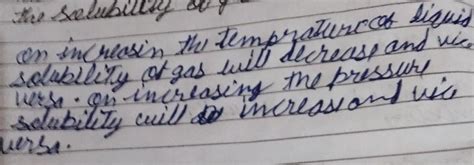 the solubility of g
on increasin the temprature of liquid
solubility of gas will decrease and vic
versa. on increasing the pressure
solubility will increase and vic
versa.